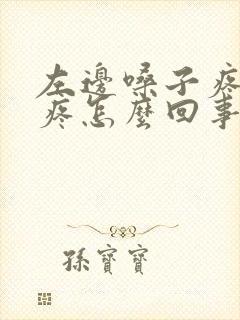 左邊嗓子疼
疼怎麼回事
孫寶寶